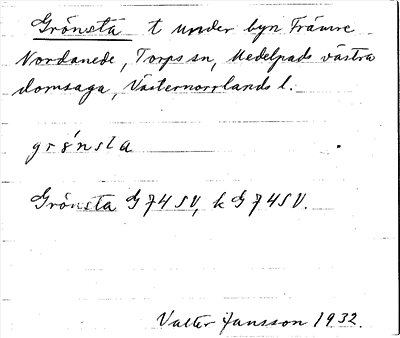 Grönsta t under byn Främre
Nordanede, Torps sn, Medelpads västra
domsaga, Västernorrlands l.
grǿnsta
Grönsta G 74 SV, k G 74 SV.
Valter Jansson 1932.